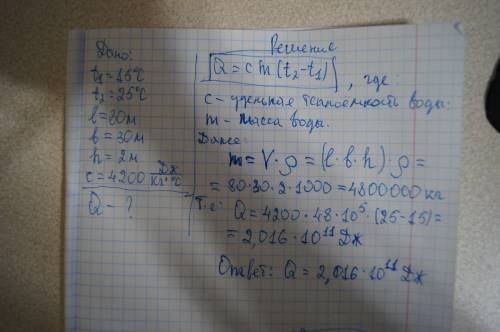 Дано:
t₁ = 15°C
t₂ = 25°C
l = 80м
b = 30м
h = 2м
c = 4200 Дж/кг·°C
Q - ?
Решение
Q = cm(t₂-t₁), где:
c - удельная теплоёмкость воды.
m - масса воды.
Далее:
m = V·ρ = (l·b·h)·ρ =
= 80·30·2·1000 = 4800000 кг
Т.е: Q = 4200·48·10⁵·(25-15) =
= 2,016·10¹¹ Дж
Ответ: Q = 2,016·10¹¹ Дж